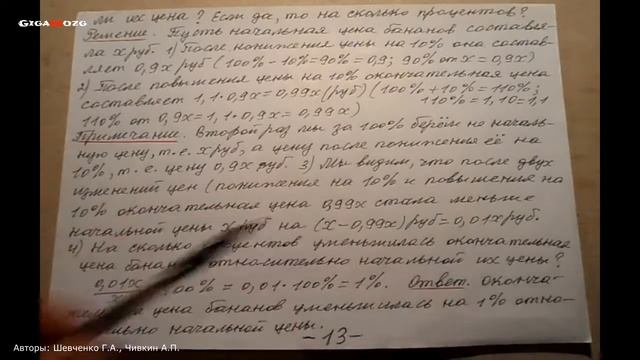 GIGAMOZG
ли их цена? Если да, то на сколько процентов?
Решение. Пусть начальная цена бананов составля-
ла x руб. 1) После понижения цены на 10% она состав-
ляет 0,9x руб (100% - 10% = 90% = 0,9; 90% от x = 0,9x)
2) После повышения цены на 10% окончательная цена
составляет 1,1·0,9x = 0,99x (руб) (100% + 10% = 110%;
110% = 1,10 = 1,1
110% от 0,9x = 1,1·0,9x = 0,99x)
Примечание. Второй раз мы за 100% берём не началь-
ную цену, т.е. x руб, а цену после понижения её на
10%, т.е. цену 0,9x руб. 3) Мы видим, что после двух
изменений цен (понижения на 10% и повышения на
10% окончательная цена 0,99x стала меньше
начальной цены x руб на (x - 0,99x) руб = 0,01x руб.
4) На сколько уменьшилась окончательная
цена относительно начальной их цены?
0,01x 100% = 0,01·100% = 1%. Ответ. Оконча-
цена бананов уменьшилась на 1% отно-
начальной цены.
-13-
Авторы: Шевченко Г.А., Чивкин А.П.